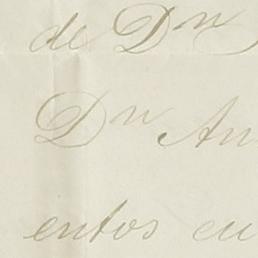 de Dn
Dn An
entos en